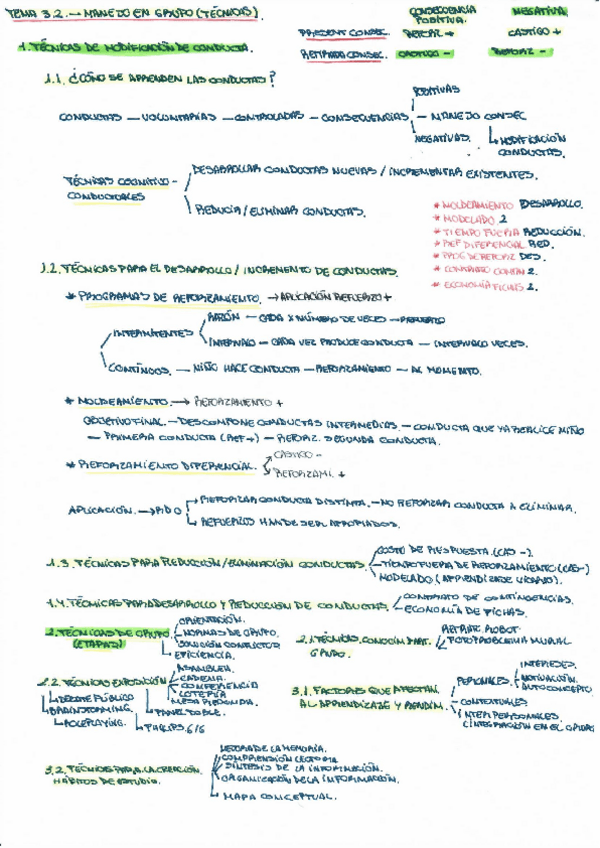 TEMA 3.2. - MANEJO EN GRUPO (TÉCNICAS)
CONSECUENCIA POSITIVA.
NEGATIVA
PRESENT CONSEC. REFORZ + CASTIGO +
RETIRADA CONSEC. CASTIGO - REFORZ -
1. TÉCNICAS DE MODIFICACIÓN DE CONDUCTA.
1.1. ¿CÓMO SE APRENDEN LAS CONDUCTAS?
POSITIVAS
CONDUCTAS — VOLUNTARIAS — CONTROLADAS — CONSECUENCIAS — MANEJO CONSEC
NEGATIVAS. MODIFICACIÓN
CONDUCTAS.
DESARROLLAR CONDUCTAS NUEVAS / INCREMENTAR EXISTENTES.
TÉCNICAS COGNITIVO-
CONDUCTUALES
REDUCIR/ELIMINAR CONDUCTAS.
* MOLDEAMIENTO DESARROLLO.
* MODELADO 2
* TIEMPO FUERA REDUCCIÓN.
* REF DIFERENCIAL RED.
* PROG DE REFORZ DES.
* CONTRATO CONTIN 2.
* ECONOMÍA FICHAS 2.
1.2. TÉCNICAS PARA EL DESARROLLO / INCREMENTO DE CONDUCTAS.
* PROGRAMAS DE REFORZAMIENTO. → APLICACIÓN REFUERZO +
RAZÓN — CADA X NÚMERO DE VECES — REFUERZO
INTERMITENTES
INTERVALO — CADA VEZ PRODUCE CONDUCTA — INTERVALO VECES.
CONTÍNUOS. — NIÑO HACE CONDUCTA — REFORZAMIENTO — AL MOMENTO.
* MOLDEAMIENTO. → REFORZAMIENTO +
OBJETIVO FINAL. — DESCOMPONE CONDUCTAS INTERMEDIAS. — CONDUCTA QUE YA REALICE NIÑO
— PRIMERA CONDUCTA (REF +) — REFORZ. SEGUNDA CONDUCTA.
* REFORZAMIENTO DIFERENCIAL. CASTIGO -
REFORZAMI. +
APLICACIÓN. → REFORZAR CONDUCTA DISTINTA. — NO REFORZAR CONDUCTA A ELIMINAR.
REFUERZOS HAN DE SER APROPIADOS.
1.3. TÉCNICAS PARA REDUCCIÓN/ELIMINACIÓN CONDUCTAS. COSTO DE RESPUESTA. (CAS -).
TIEMPO FUERA DE REFORZAMIENTO (CAS -)
MODELADO (APRENDIZAJE VICARIO).
1.4. TÉCNICAS PARA DESARROLLO Y REDUCCIÓN DE CONDUCTAS. CONTRATO DE CONTINGENCIAS.
ECONOMÍA DE FICHAS.
2. TÉCNICAS DE GRUPO. (ETAPAS)
ORIENTACIÓN.
NORMAS DE GRUPO.
SOLUCIÓN CONFLICTOS
EFICIENCIA.
2.1. TÉCNICAS. CONOCIM. PART. GRUPO.
RETRATO ROBOT.
FOTOPROBLEMA MURAL
2.2. TÉCNICAS EXPOSICIÓN
ASAMBLEA.
CADENA.
CONFERENCIA
LOTERÍA
MESA REDONDA.
DEBATE PÚBLICO
BRAINSTORMING.
ROLEPLAYING.
PANEL DOBLE.
PHILIPS. 6/6
3.1. FACTORES QUE AFECTAN AL APRENDIZAJE Y RENDIM.
PERSONALES
INTERESES.
MOTIVACIÓN.
AUTOCONCEPTO.
CONTEXTUALES
INTERPERSONALES.
(INTEGRACIÓN EN EL GRUPO)
3.2. TÉCNICAS PARA LA CREACIÓN. HÁBITOS DE ESTUDIO.
MEJORA DE LA MEMORIA.
COMPRENSIÓN LECTORA
SÍNTESIS DE LA INFORMACIÓN.
ORGANIZACIÓN DE LA INFORMACIÓN.
MAPA CONCEPTUAL.